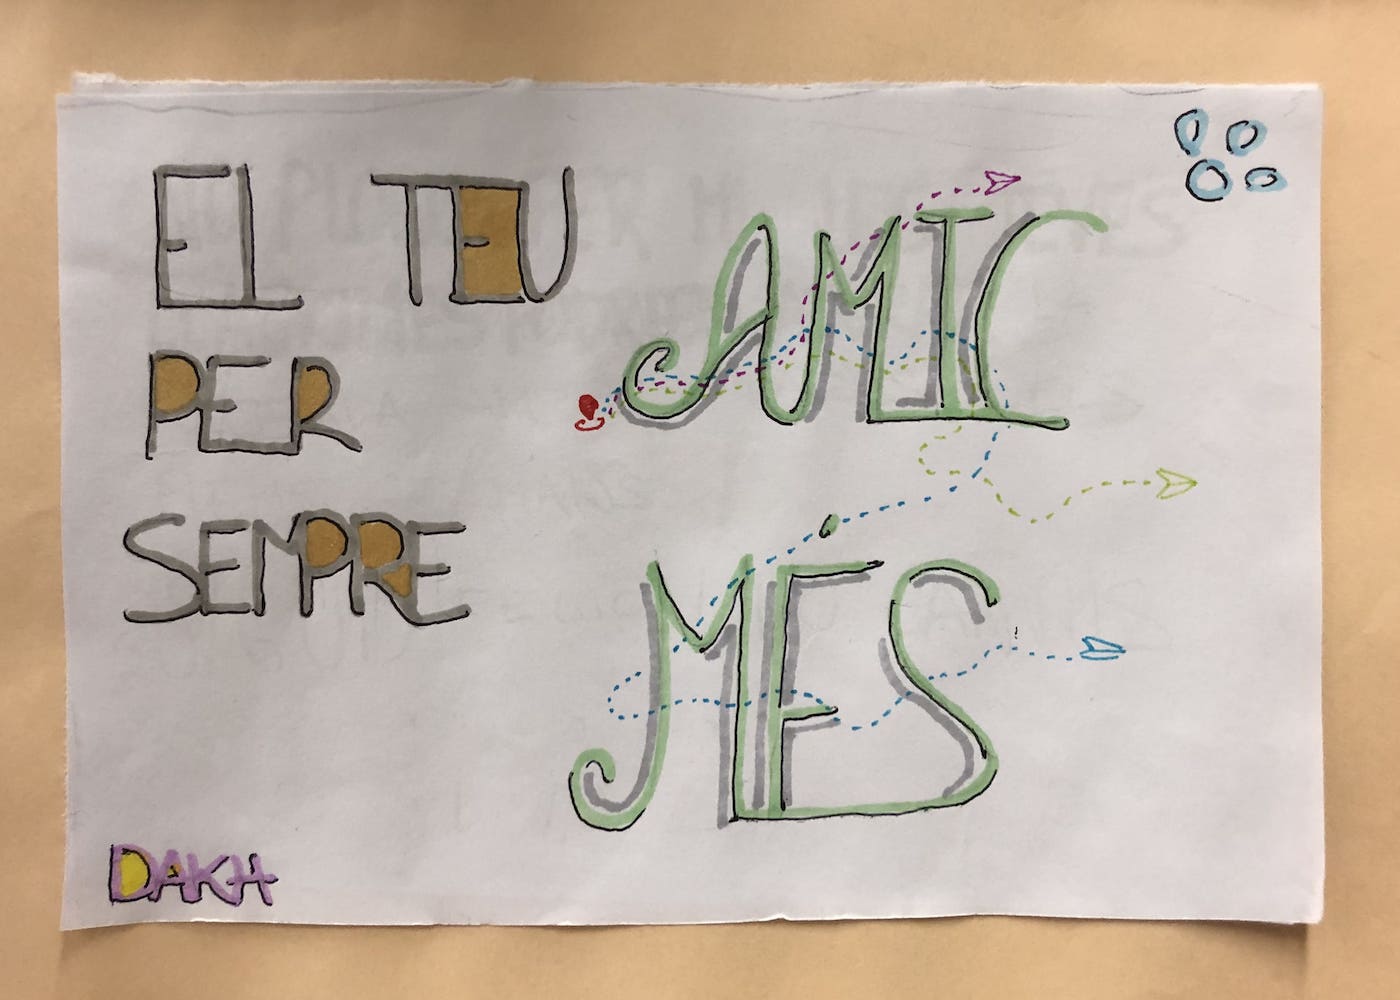 EL TEU
PER
SEMPRE
AMIC
MÉS
DAKH